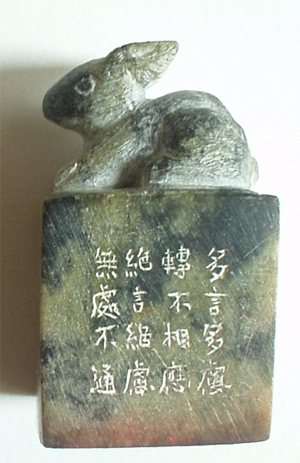 多言多慮
轉不相應
絕言絕慮
無處不通